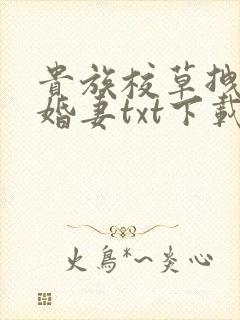 貴族校草拽
婚妻txt下載
火鳥*~炎心